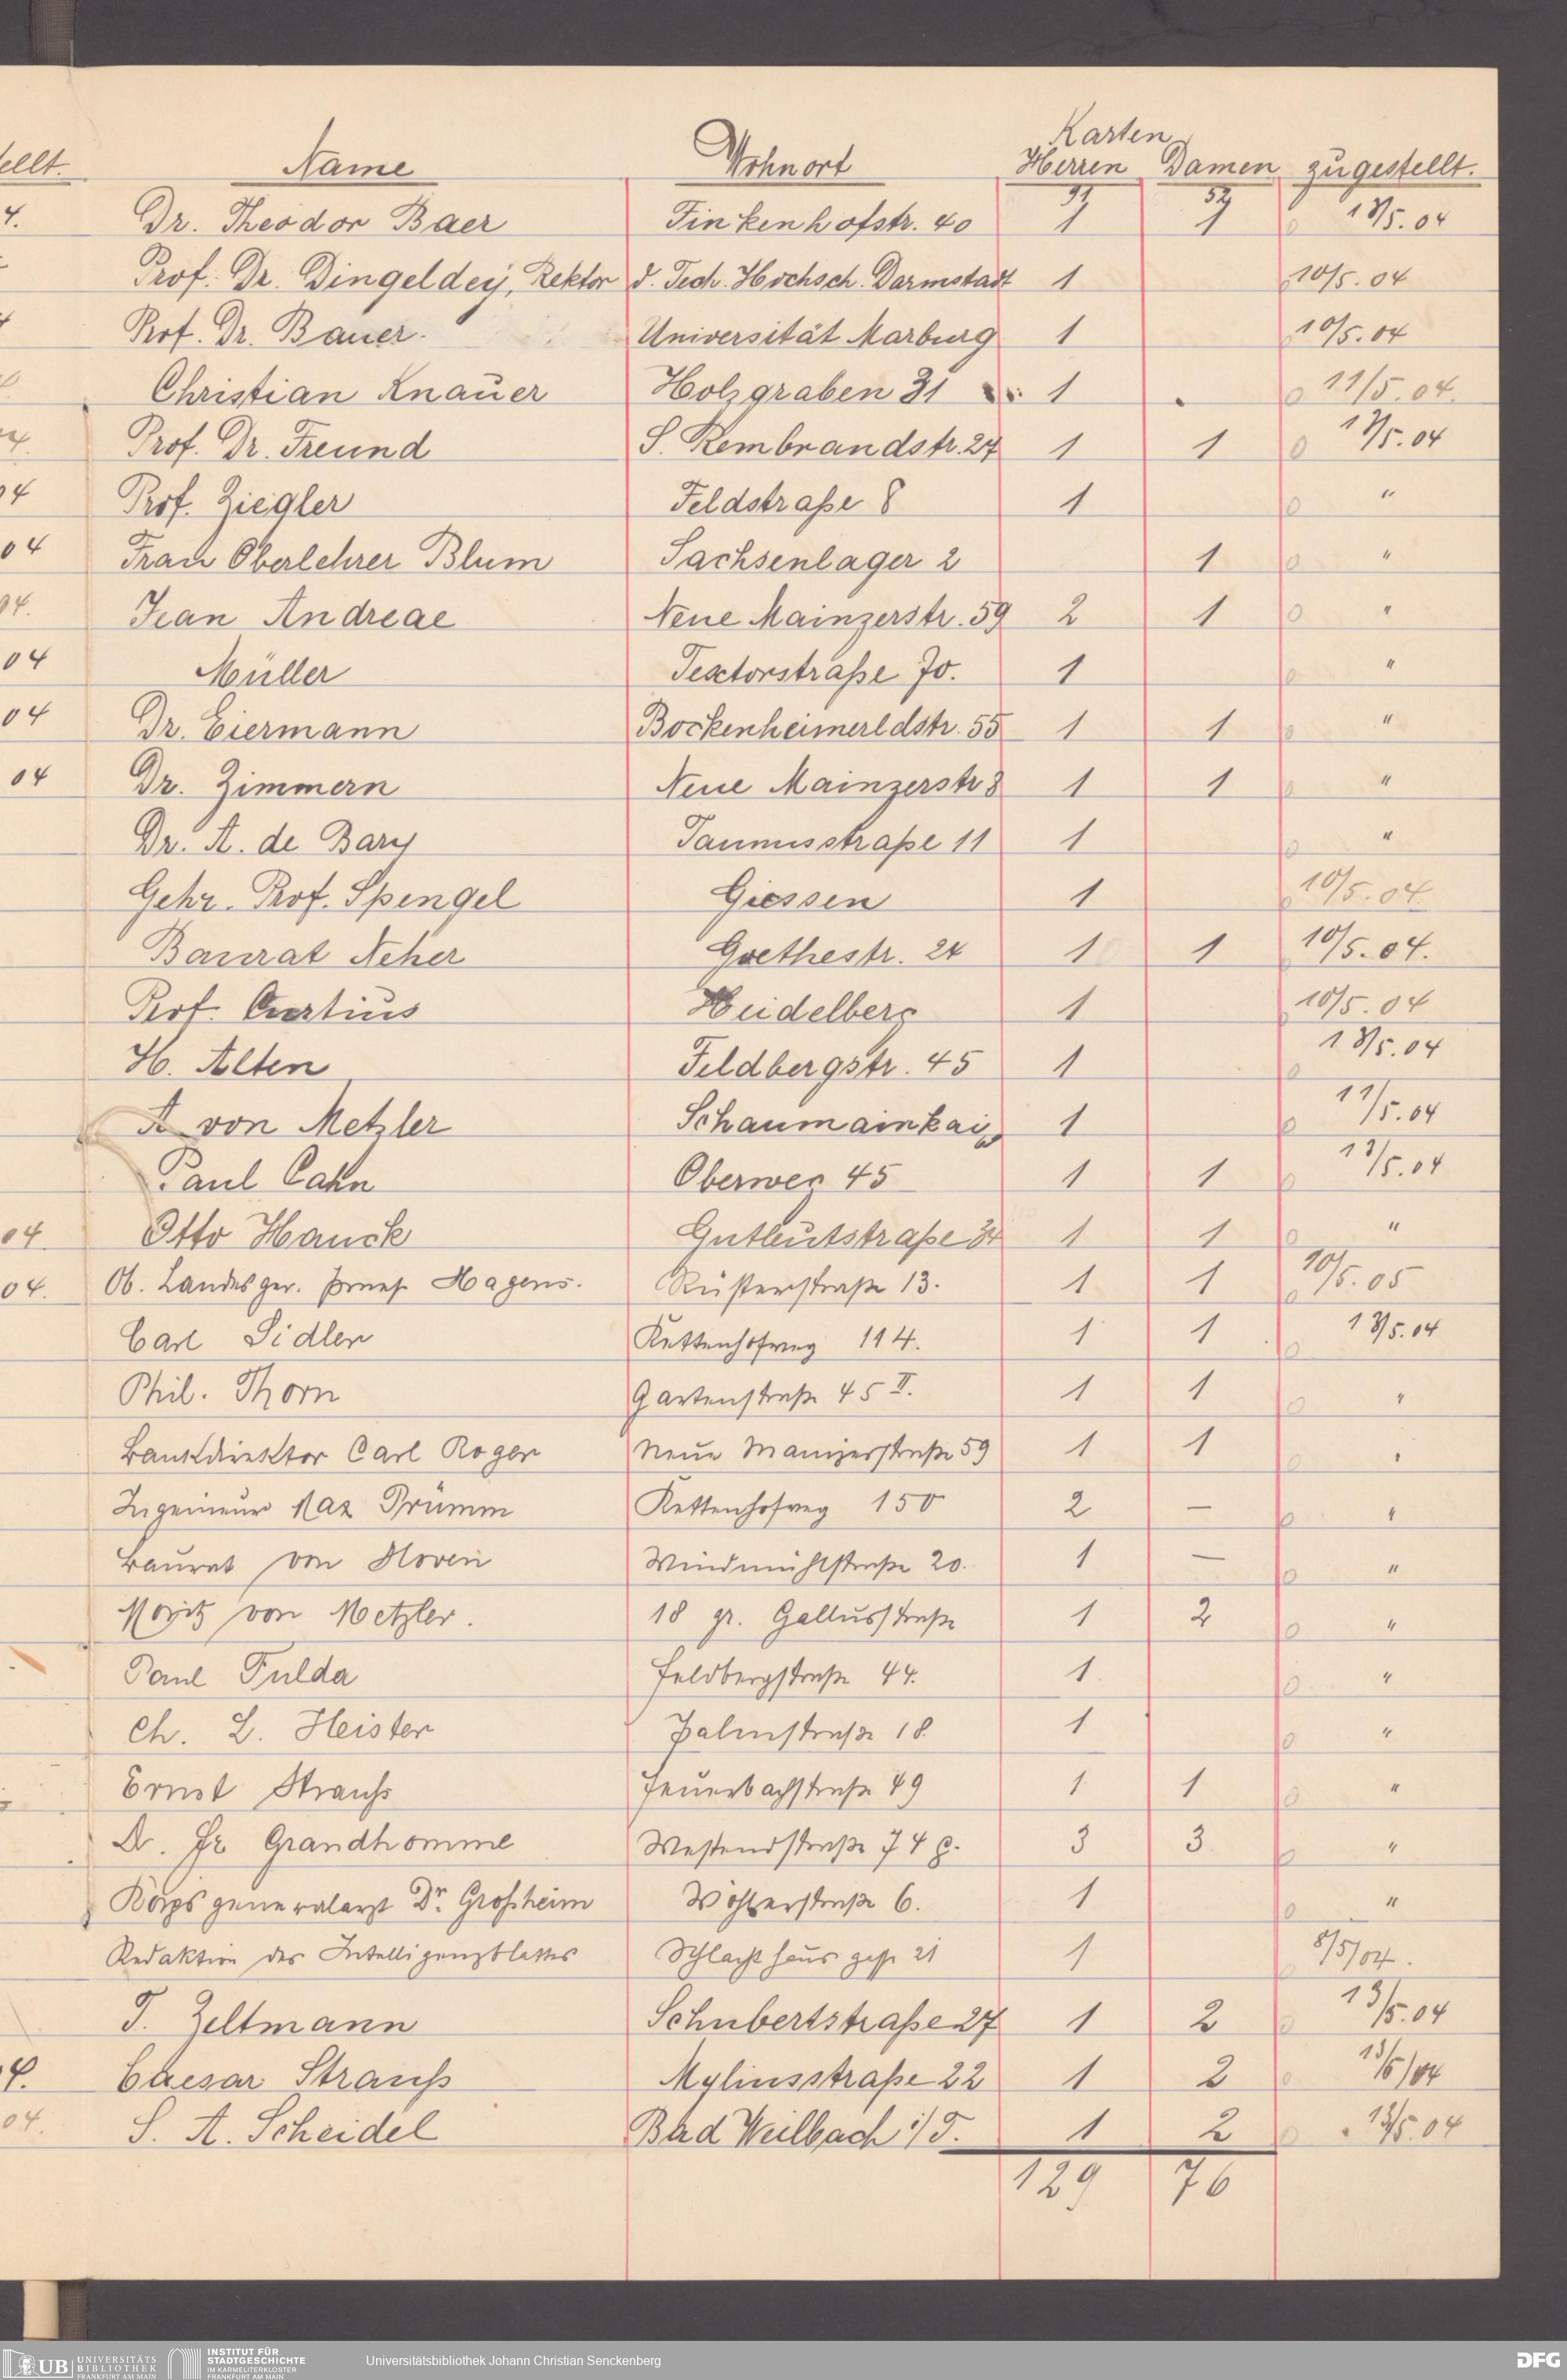 Karten
ellt. Name Wohnort Herren Damen zugestellt.
4. Dr. Theodor Baer Finkenhofstr. 40 1 1 13/5.04
Prof. Dr. Dingeldey, Rektor d. Tech. Hochsch. Darmstadt 1 10/5.04
Prof. Dr. Bauer. Universität Marburg 1 10/5.04
Christian Knauer Holzgraben 31 1 11/5.04.
Prof. Dr. Freund S. Rembrandstr. 27 1 1 13/5.04
04 Prof. Ziegler Feldstraße 8 1 "
04 Frau Oberlehrer Blum Sachsenlager 2 1 "
04. Jean Andreae Neue Mainzerstr. 59 2 1 "
04 Müller Textorstraße 70. 1 "
04 Dr. Eiermann Bockenheimerldstr. 55 1 1 "
04 Dr. Zimmern Neue Mainzerstr 8 1 1 "
Dr. A. de Bary Taunusstraße 11 1 "
Gehr. Prof. Spengel Giessen 1 10/5.04.
Baurat Neher Goethestr. 24 1 1 10/5.04.
Prof. Curtius Heidelberg 1 10/5.04
H. Alten Feldbergstr. 45 1 13/5.04
A von Metzler Schaumainkai 1 13/5.04
Paul Cahn Oberweg 45 1 1 13/5.04
04. Otto Hauck Gutleutstraße 34 1 1 "
04. Ob. Landesger. Präs. Hagens. Rüsterstraße 13. 1 1 10/5.05
Carl Sidler Kettenhofweg 114. 1 1 13/5.04
Phil. Thorn Gartenstraße 45 II. 1 1 "
Bankdirektor Carl Roger Neue Mainzerstraße 59 1 1 "
Ingenieur Max Prümm Kettenhofweg 150 2 — "
Baurat von Hoven Windmühlstraße 20. 1 — "
Moritz von Metzler. 18 gr. Gallusstraße 1 2 "
Paul Fulda Feldbergstraße 44. 1. "
Ch. L. Heister Palmstraße 18. 1 "
Ernst Strauß Feuerbachstraße 49 1 1 "
Dr. Fr Grandhomme Westendstraße 74 p. 3 3 "
Korpsgeneralarzt Dr. Großheim Wöhlerstraße 6. 1 "
Redaktion des Intelligenzblattes Schlachthausgasse 21 1 8/5/04.
T. Zeltmann Schubertstraße 27 1 2 13/5.04
4. Caesar Strauß Myliusstraße 22 1 2 13/5/04
04. S. A. Scheidel Bad Weilbach i/T. 1 2 13/5.04
129 76
UB UNIVERSITÄTS BIBLIOTHEK FRANKFURT AM MAIN
INSTITUT FÜR STADTGESCHICHTE IM KARMELITERKLOSTER FRANKFURT AM MAIN
Universitätsbibliothek Johann Christian Senckenberg
DFG